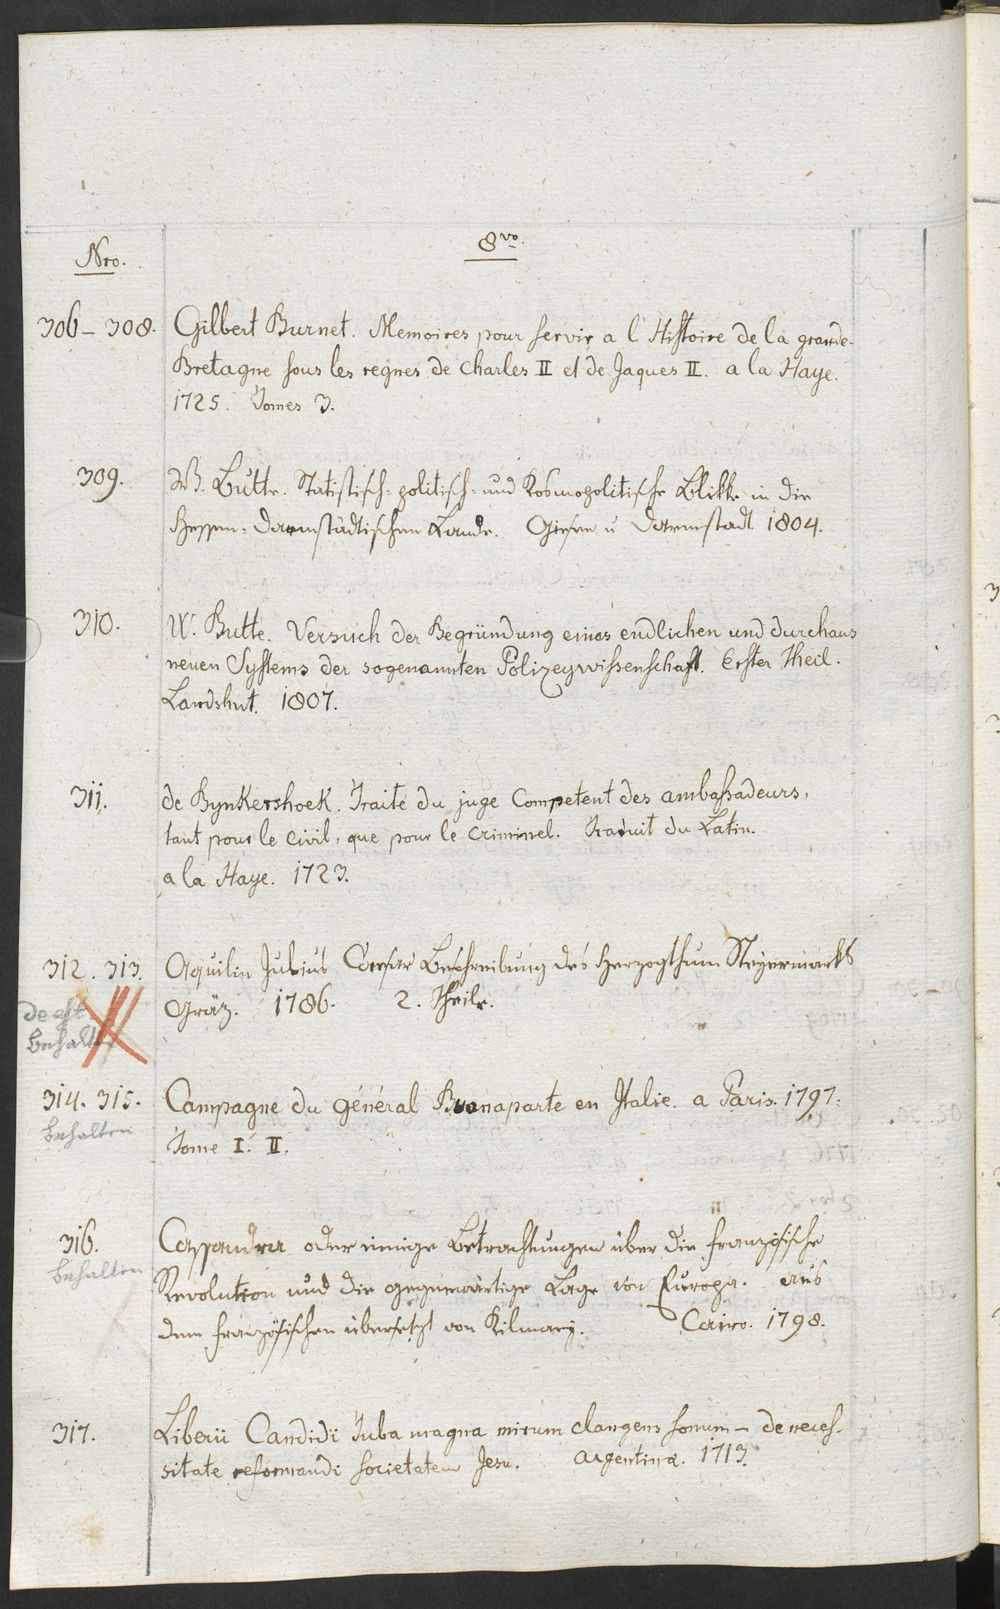 Nro.
8vo.
306 - 308. Gilbert Burnet. Memoires pour servir a l'Histoire de la grande-
Bretagne sous les regnes de Charles II et de Jaques II. a la Haye.
1725. Tomes 3.
309. W. Butte. Statistisch-politisch- und Kosmopolitische Blikke in die
Hessen-Darmstädtischen Lande. Giesen u Darmstadt 1804.
310. W. Butte. Versuch der Begründung eines endlichen und durchaus
neuen Systems der sogenannten Polizeywissenschaft. Erster Theil.
Landshut. 1807.
311. de Bynkershoek. Traité du juge Competent des ambassadeurs,
tant pour le civil, que pour le criminel. Traduit du Latin.
a la Haye. 1723.
312. 313. Aquilin Julius Caesar Beschreibung des Herzogthum Steyermarks
Gräz. 1786. 2. Theile.
deest
behalten
314. 315. Campagne du général Buonaparte en Italie. a Paris. 1797.
behalten
Tome I. II.
316. Cassandra oder einige Betrachtungen über die französische
behalten
Revolution und die gegenwärtige Lage von Europa. aus
dem französischen übersetzt von Kilmary. Cairo. 1798.
317. Liberii Candidi Tuba magna mirum clangens sonum - de neces-
sitate reformandi societatem Jesu. Argentinæ. 1713.